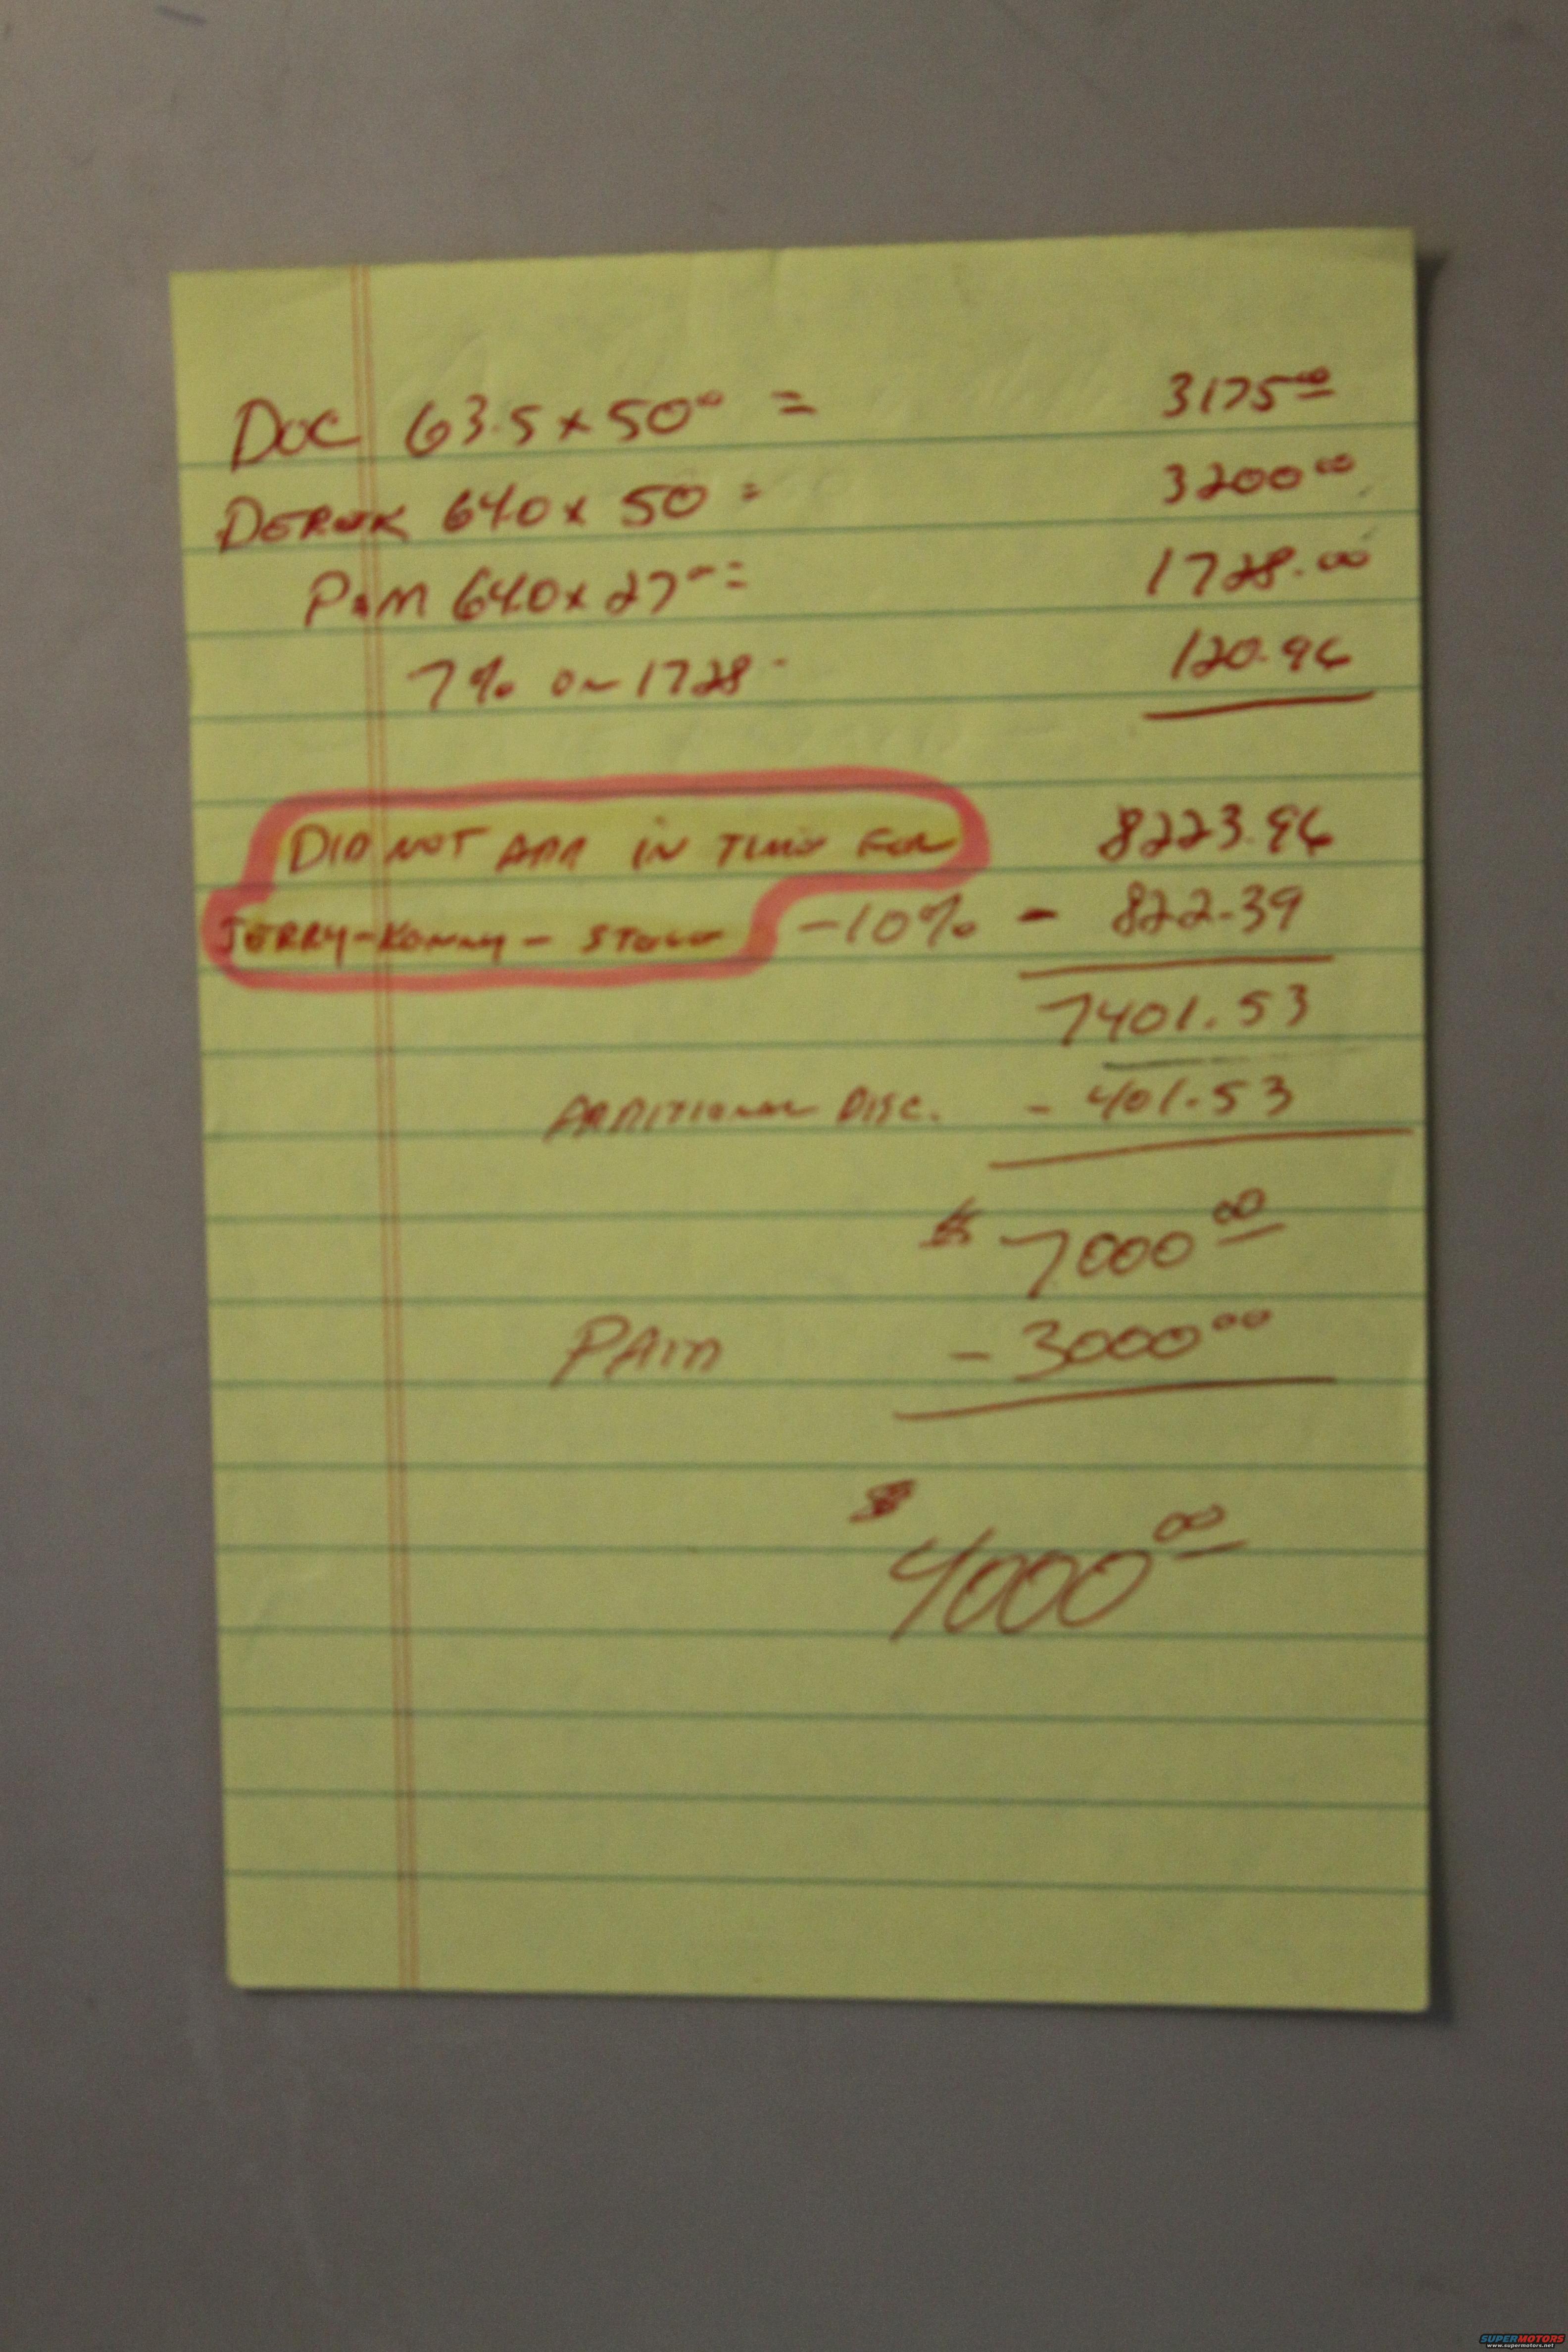 DOC 63.5 x 50⁰⁰ = 3175⁰⁰
DEREK 64.0 x 50 = 3200⁰⁰
PAM 64.0 x 27⁰⁰ = 1728.00
7% on 1728 120.96
DID NOT ADD IN TIME FOR 8223.96
JERRY-KENNY- STEVE -10% - 822.39
7401.53
ADDITIONAL DISC. - 401.53
$ 7000⁰⁰
PAID - 3000⁰⁰
$ 4000⁰⁰
SUPERMOTORS
www.supermotors.net